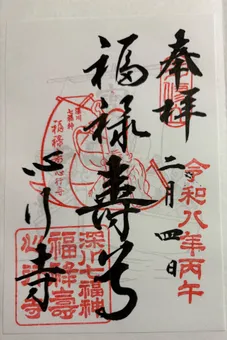 奉拝
令和八年丙午
二月四日
福禄寿尊
深川
七福神
心行寺
深川七福神
福禄寿
心行寺